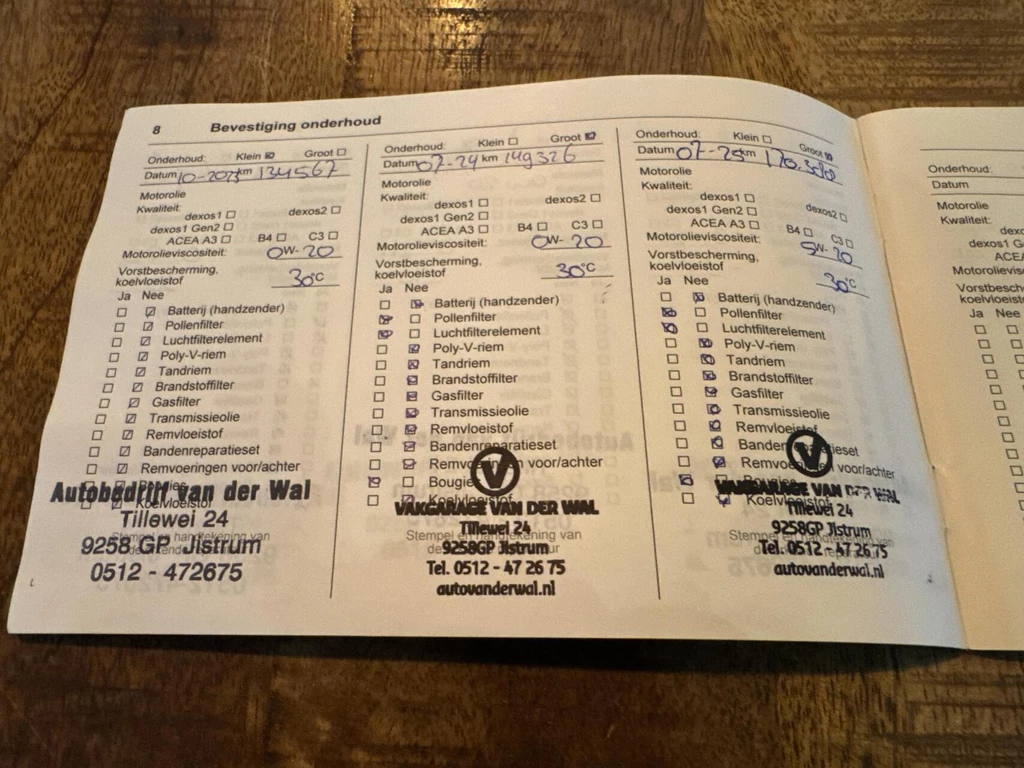 8 Bevestiging onderhoud
Onderhoud: Klein Groot
Datum 10-2023 km 134567
Motorolie
Kwaliteit:
dexos1 dexos2
dexos1 Gen2
ACEA A3 B4 C3
Motorolieviscositeit: 0W-20
Vorstbescherming,
koelvloeistof 30°C
Ja Nee
Batterij (handzender)
Pollenfilter
Luchtfilterelement
Poly-V-riem
Tandriem
Brandstoffilter
Gasfilter
Transmissieolie
Remvloeistof
Bandenreparatieset
Remvoeringen voor/achter
Koelvloeistof
Autobedrijf van der Wal
Tillewei 24
9258 GP Jistrum
0512 - 472675
Onderhoud: Klein Groot
Datum 07-24 km 149326
Motorolie
Kwaliteit:
dexos1 dexos2
dexos1 Gen2
ACEA A3 B4 C3
Motorolieviscositeit: 0W-20
Vorstbescherming,
koelvloeistof 30°C
Ja Nee
Batterij (handzender)
Pollenfilter
Luchtfilterelement
Poly-V-riem
Tandriem
Brandstoffilter
Gasfilter
Transmissieolie
Remvloeistof
Bandenreparatieset
Remvoeringen voor/achter
Bougies
Koelvloeistof
V
VAKGARAGE VAN DER WAL
Tillewei 24
Stempel en handtekening van
9258GP Jistrum
Tel. 0512 - 47 26 75
autovanderwal.nl
Onderhoud: Klein Groot
Datum 07-25 km
Motorolie
Kwaliteit:
dexos1 dexos2
dexos1 Gen2
ACEA A3 B4 C3
Motorolieviscositeit:
Vorstbescherming,
koelvloeistof 30°C
Ja Nee
Batterij (handzender)
Pollenfilter
Luchtfilterelement
Poly-V-riem
Tandriem
Brandstoffilter
Gasfilter
Transmissieolie
Remvloeistof
Bandenreparatieset
Remvoeringen voor/achter
Bougies
Koelvloeistof
V
VAKGARAGE VAN DER WAL
Tillewei 24
9258GP Jistrum
Tel. 0512 - 47 26 75
autovanderwal.nl
Onderhoud:
Datum
Motorolie
Kwaliteit:
Ja Nee